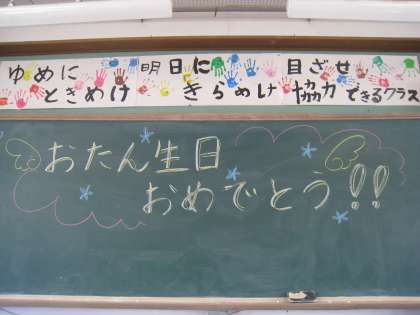 ゆめに ときめけ
明日に きらめけ
目ざせ 協力できるクラス
おたん生日
おめでとう!!